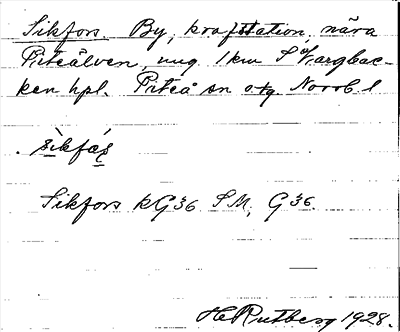 Sikfors. By, kraftstation, nära
Piteälven, ung. 1 km S of Vargbac-
ken hpl. Piteå sn o tg Norrb l
Sikfors kG36 SM, G36.
H Rutberg 1928.